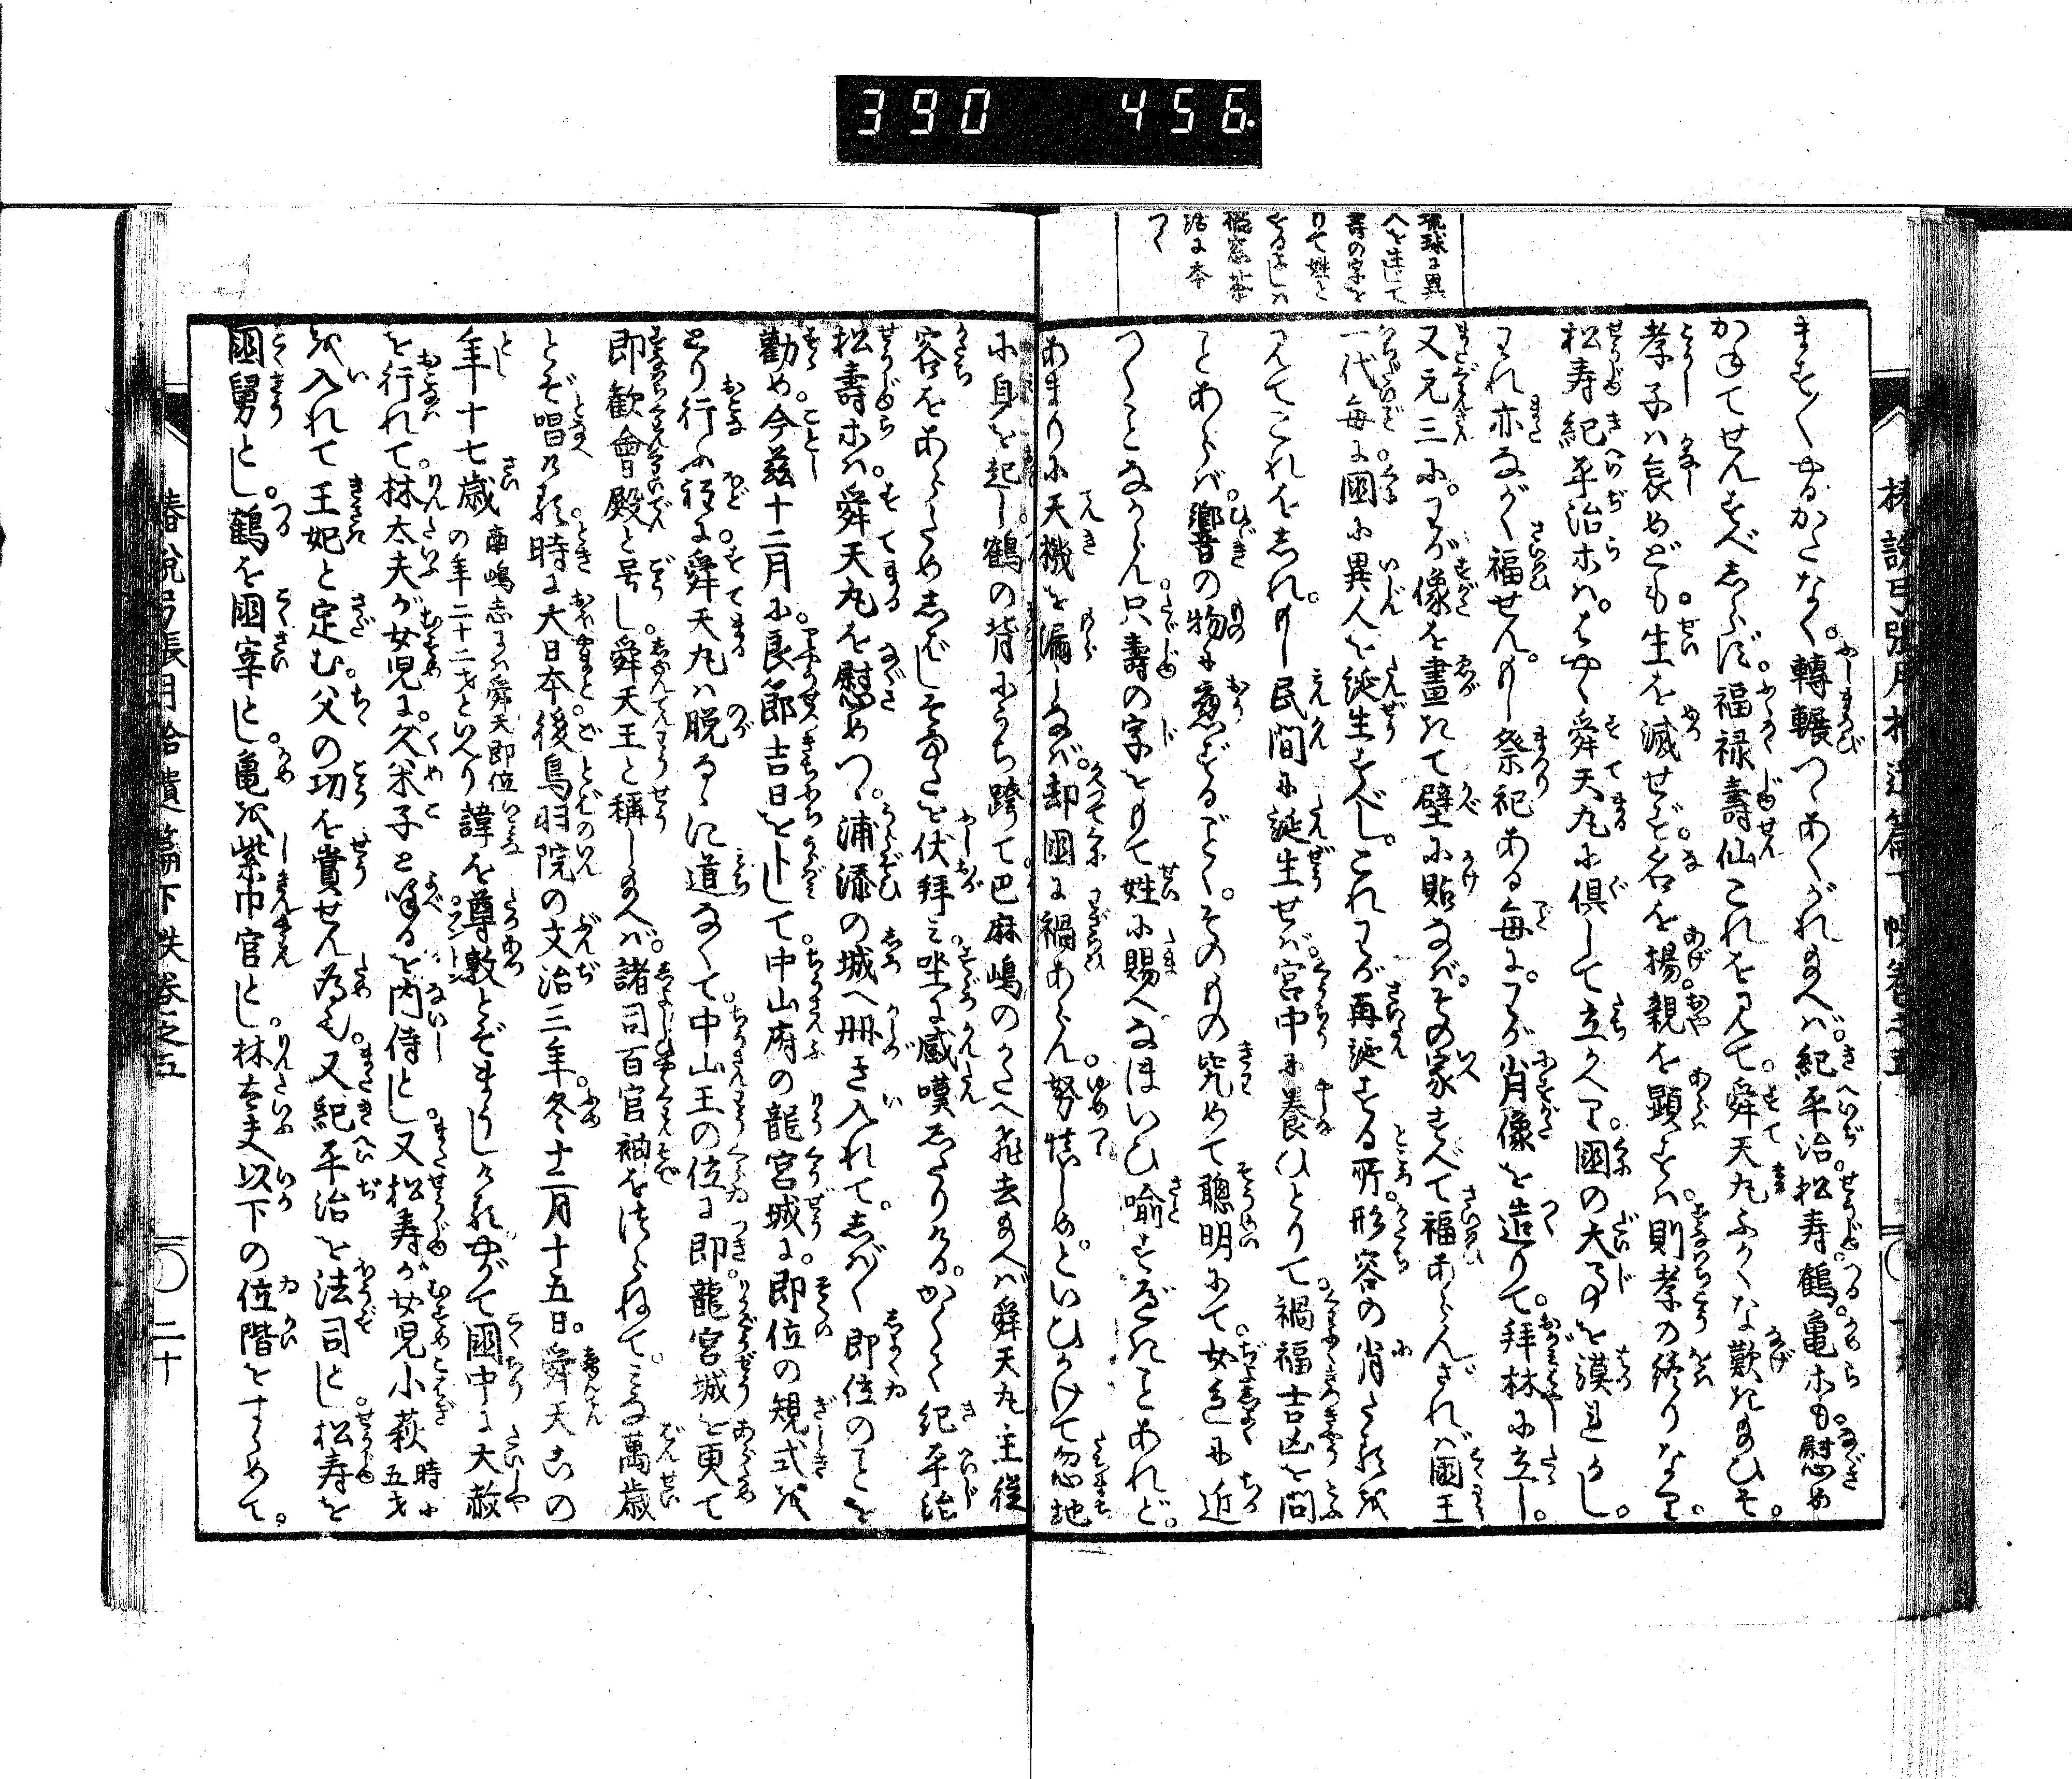 390 456
琉球に異
人を生じて
壽の字を
もて姓と
せるよしは
つく
ますく\やるかたなく。轉輾つゝあくがれ給へバ。紀平治松寿鶴亀ホも慰め
かねてせんすべしらず。福禄壽仙これを見て。舜天丸ふかくな歎きたまひそ。
孝子ハ哀めども生を滅せず。名を揚。親を顕すハ則孝の終りなり。
松寿紀平治ホハ。はやく舜天丸に倶して立かへり。國の大事を謨れかし。
われ亦ながく福せん。もし祭祀ある毎に。わが肖像を造りて。拝林に立し。
又元三に。わが像を畫きて壁に貼なバ。その家すべて福あらん。されバ國王
一代毎に國に異人を誕生すべし。これわが再誕する所。形容の肖たるを
見てこれをしれ。もし民間に誕生せバ。宮中に養ひとりて。禍福吉凶を問
ことあらバ。響の物に應ずるごとく。そのもの究めて聰明にて。女色に近
つくことなからん。只壽の字をもて姓に賜へ。なほいひ喩すべきことあれど。
あまりに天機を漏しなバ。却國に禍あらん。努怪しめ。といひかけて忽地
に身を起し鶴の背にうち跨て。巴麻嶋のかたへ飛去給へバ舜天丸主従
容をあらためしばしそなたを伏拝み。坐に感嘆したりける。かくて紀平治
松壽ホハ。舜天丸を慰めつゝ。浦添の城へ冊き入れて。しばく\即位のことを
勸め。今茲十二月に。良節吉日を卜して。中山府の龍宮城に。即位の規式を
とり行ふ程に。舜天丸ハ脱るゝに道なくて。中山王の位に即。龍宮城を更て
即歓會殿と号し。舜天王と稱し給へバ。諸司百官袖をつらねて。みな萬歳
とぞ唱ける。時に大日本。後鳥羽院の文治三年。冬十二月十五日。舜天このとし
年十七歳南嶋志にハ舜天即位の年二十二才といへり諱を尊敦とぞまうしける。やがて國中に大赦
を行れて。林太夫が女児に。久米子と呼るを内侍とし。又松寿が女児小萩時に五才
を入れて王妃と定む。父の功を賞せん為也。又紀平治を法司とし。松寿を
國舅とし。鶴を國宰とし。亀を紫巾官とし。林太夫以下の位階をすゝめて。
椿説弓張月拾遺篇下帙巻之五
二十